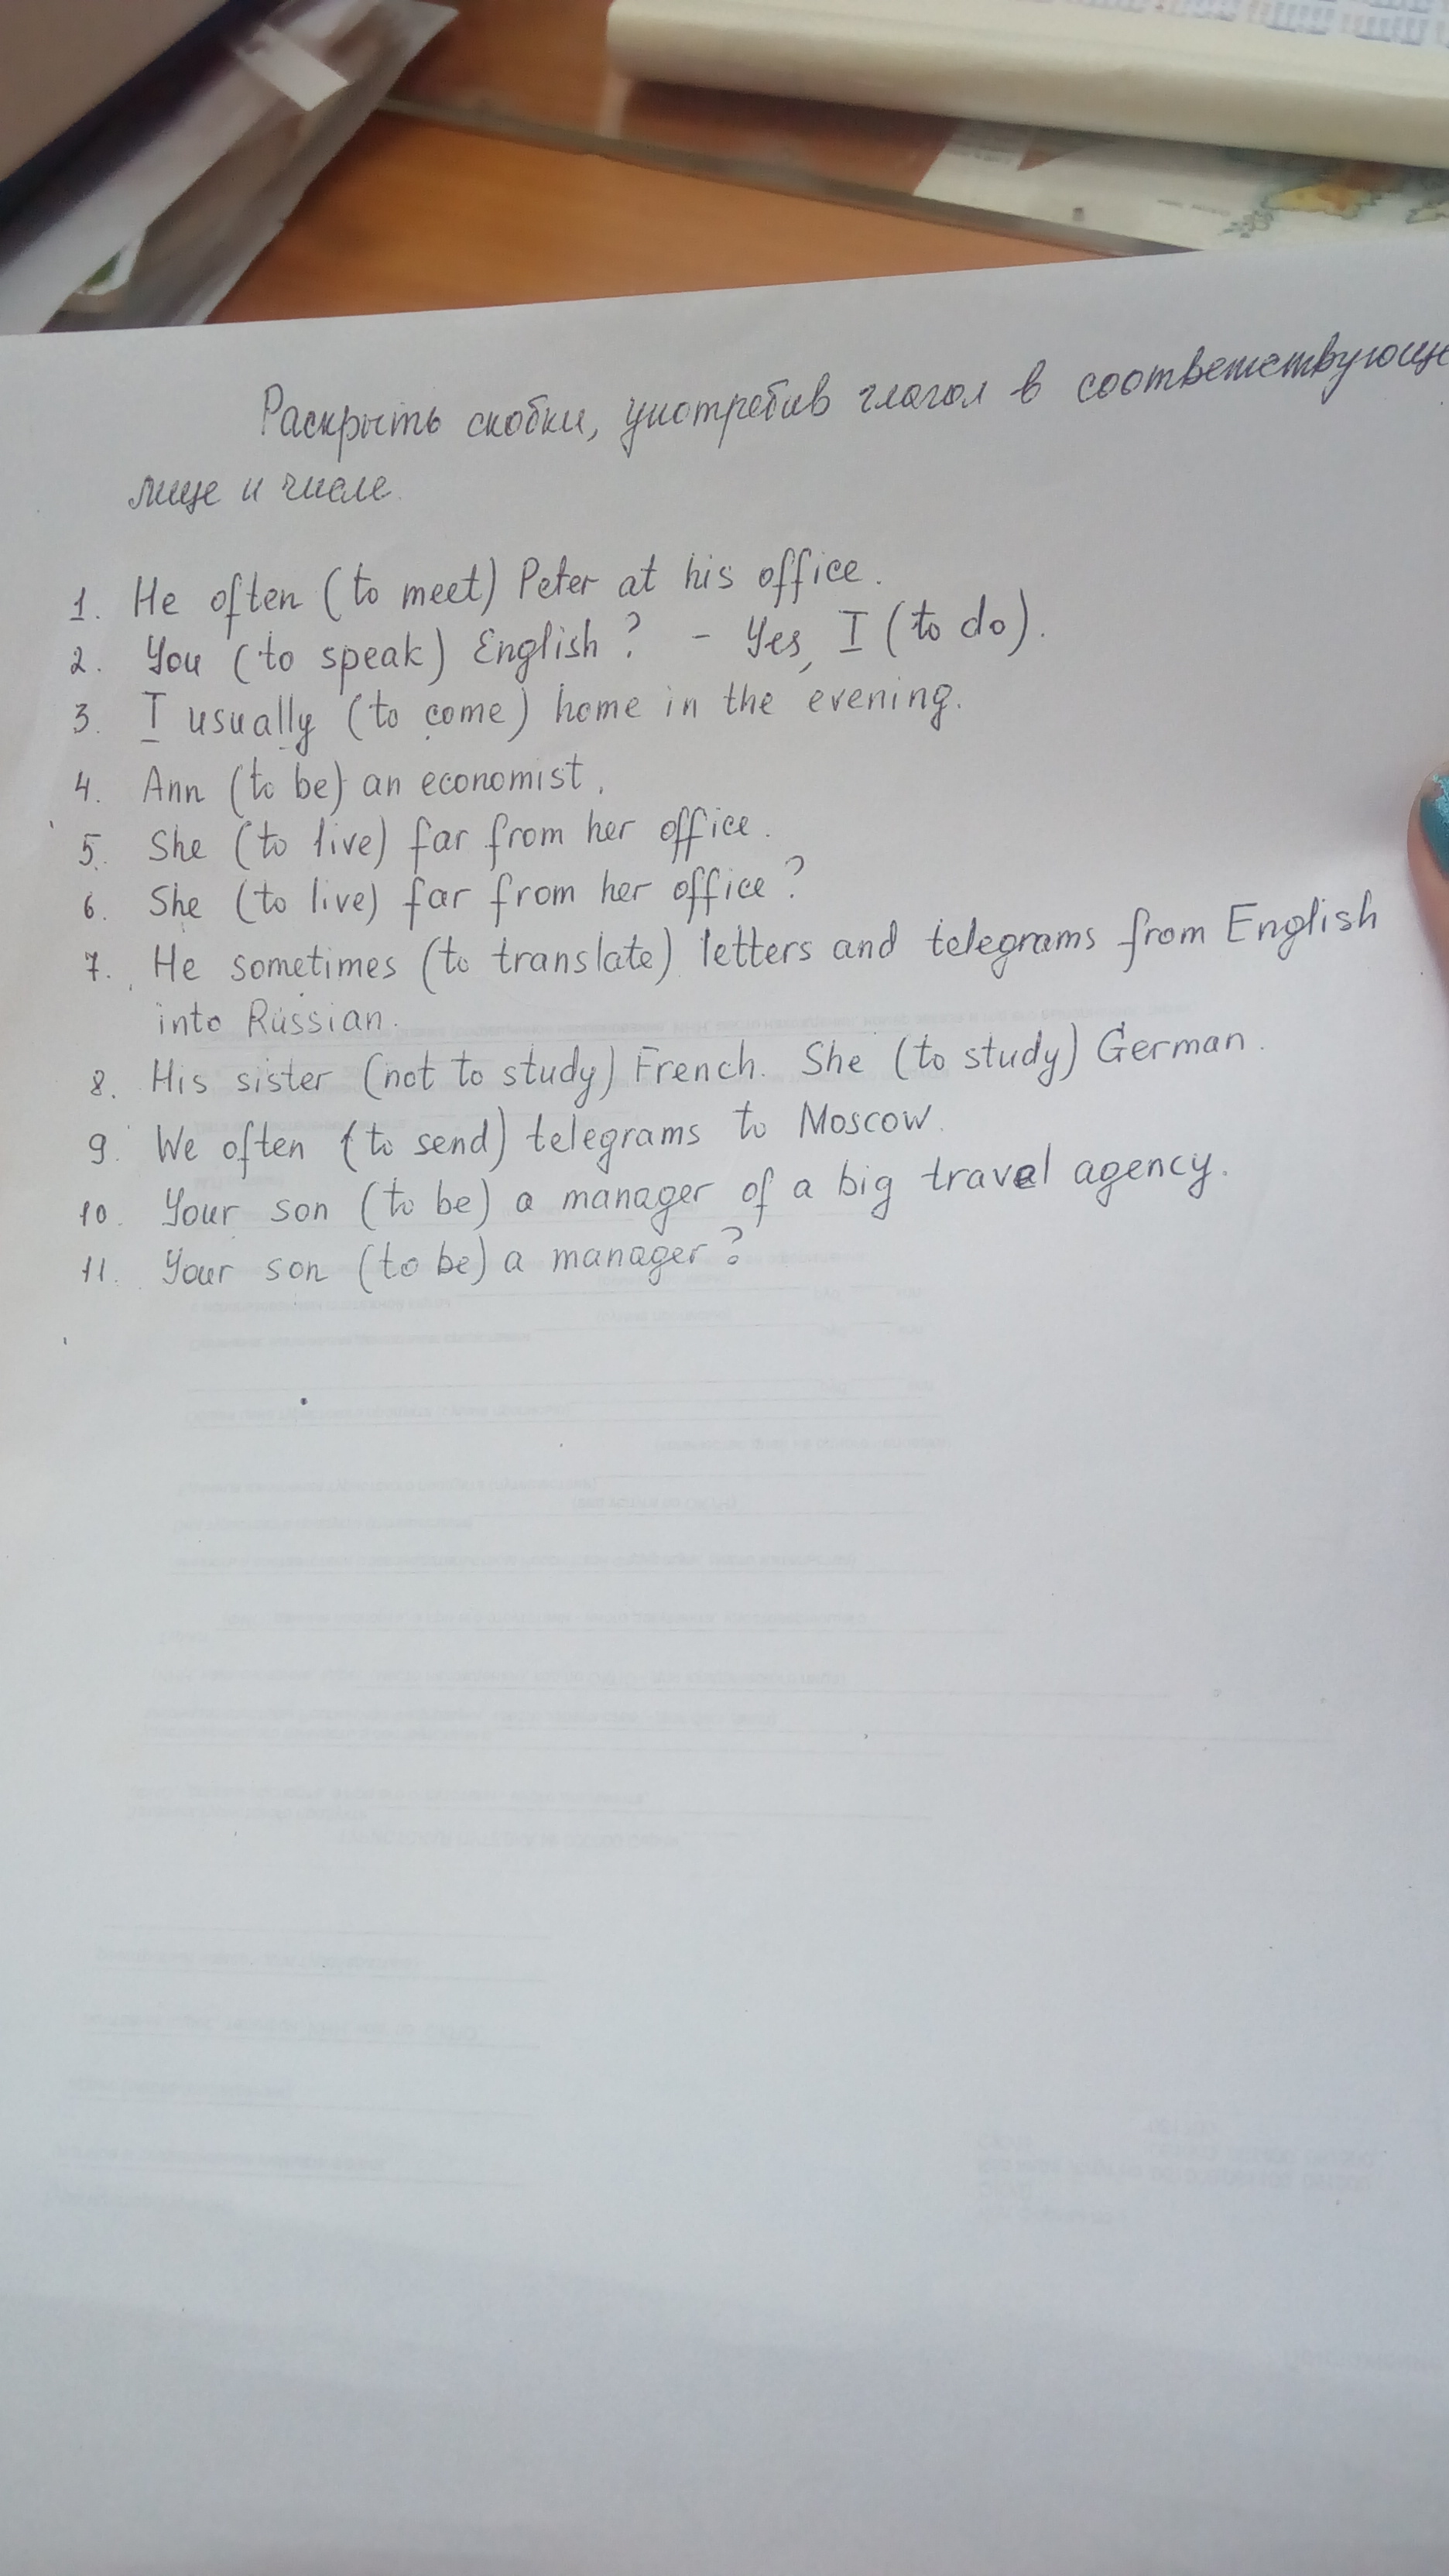 Раскрыть скобки, употребив глагол в соответствующе
лице и числе.
1. He often (to meet) Peter at his office.
2. You (to speak) English? - Yes, I (to do).
3. I usually (to come) home in the evening.
4. Ann (to be) an economist.
5. She (to live) far from her office.
6. She (to live) far from her office?
7. He sometimes (to translate) letters and telegrams from English
into Russian.
8. His sister (not to study) French. She (to study) German.
9. We often (to send) telegrams to Moscow.
10. Your son (to be) a manager of a big travel agency.
11. Your son (to be) a manager?